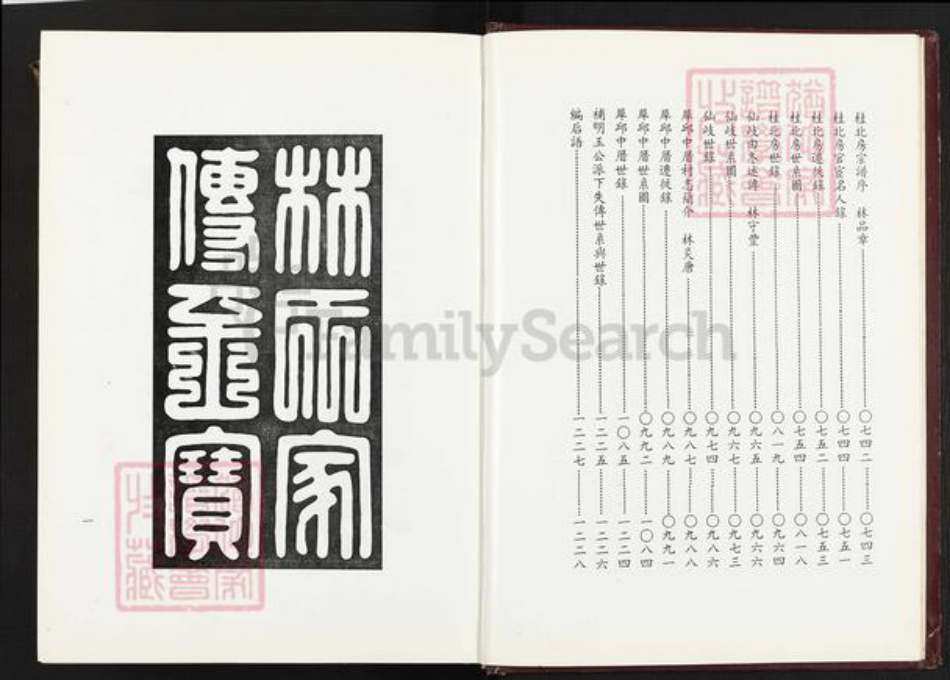 桂北房宗譜序　林品章……〇七四二……〇七四三
桂北房官宦名人錄……〇七四四……〇七五一
桂北房遷徙錄……〇七五二……〇七五三
桂北房世系圖……〇七五四……〇八一八
桂北房世錄……〇八一九……〇九六四
仙岐由冬述傳　林守豐……〇九六五……〇九六六
仙岐世系圖……〇九六七……〇九七三
仙岐世錄……〇九七四……〇九八六
犀邱中厝村志簡介　林炎唐……〇九八七……〇九八八
犀邱中厝遷徙錄……〇九八九……〇九九一
犀邱中厝世系圖……〇九九二……一〇八四
犀邱中厝世錄……一〇八五……一二二四
補明玉公派下失傳世系與世錄……一二二五……一二二六
編后語……一二二七……一二二八
林
家
傳
寶
一
FamilySearch